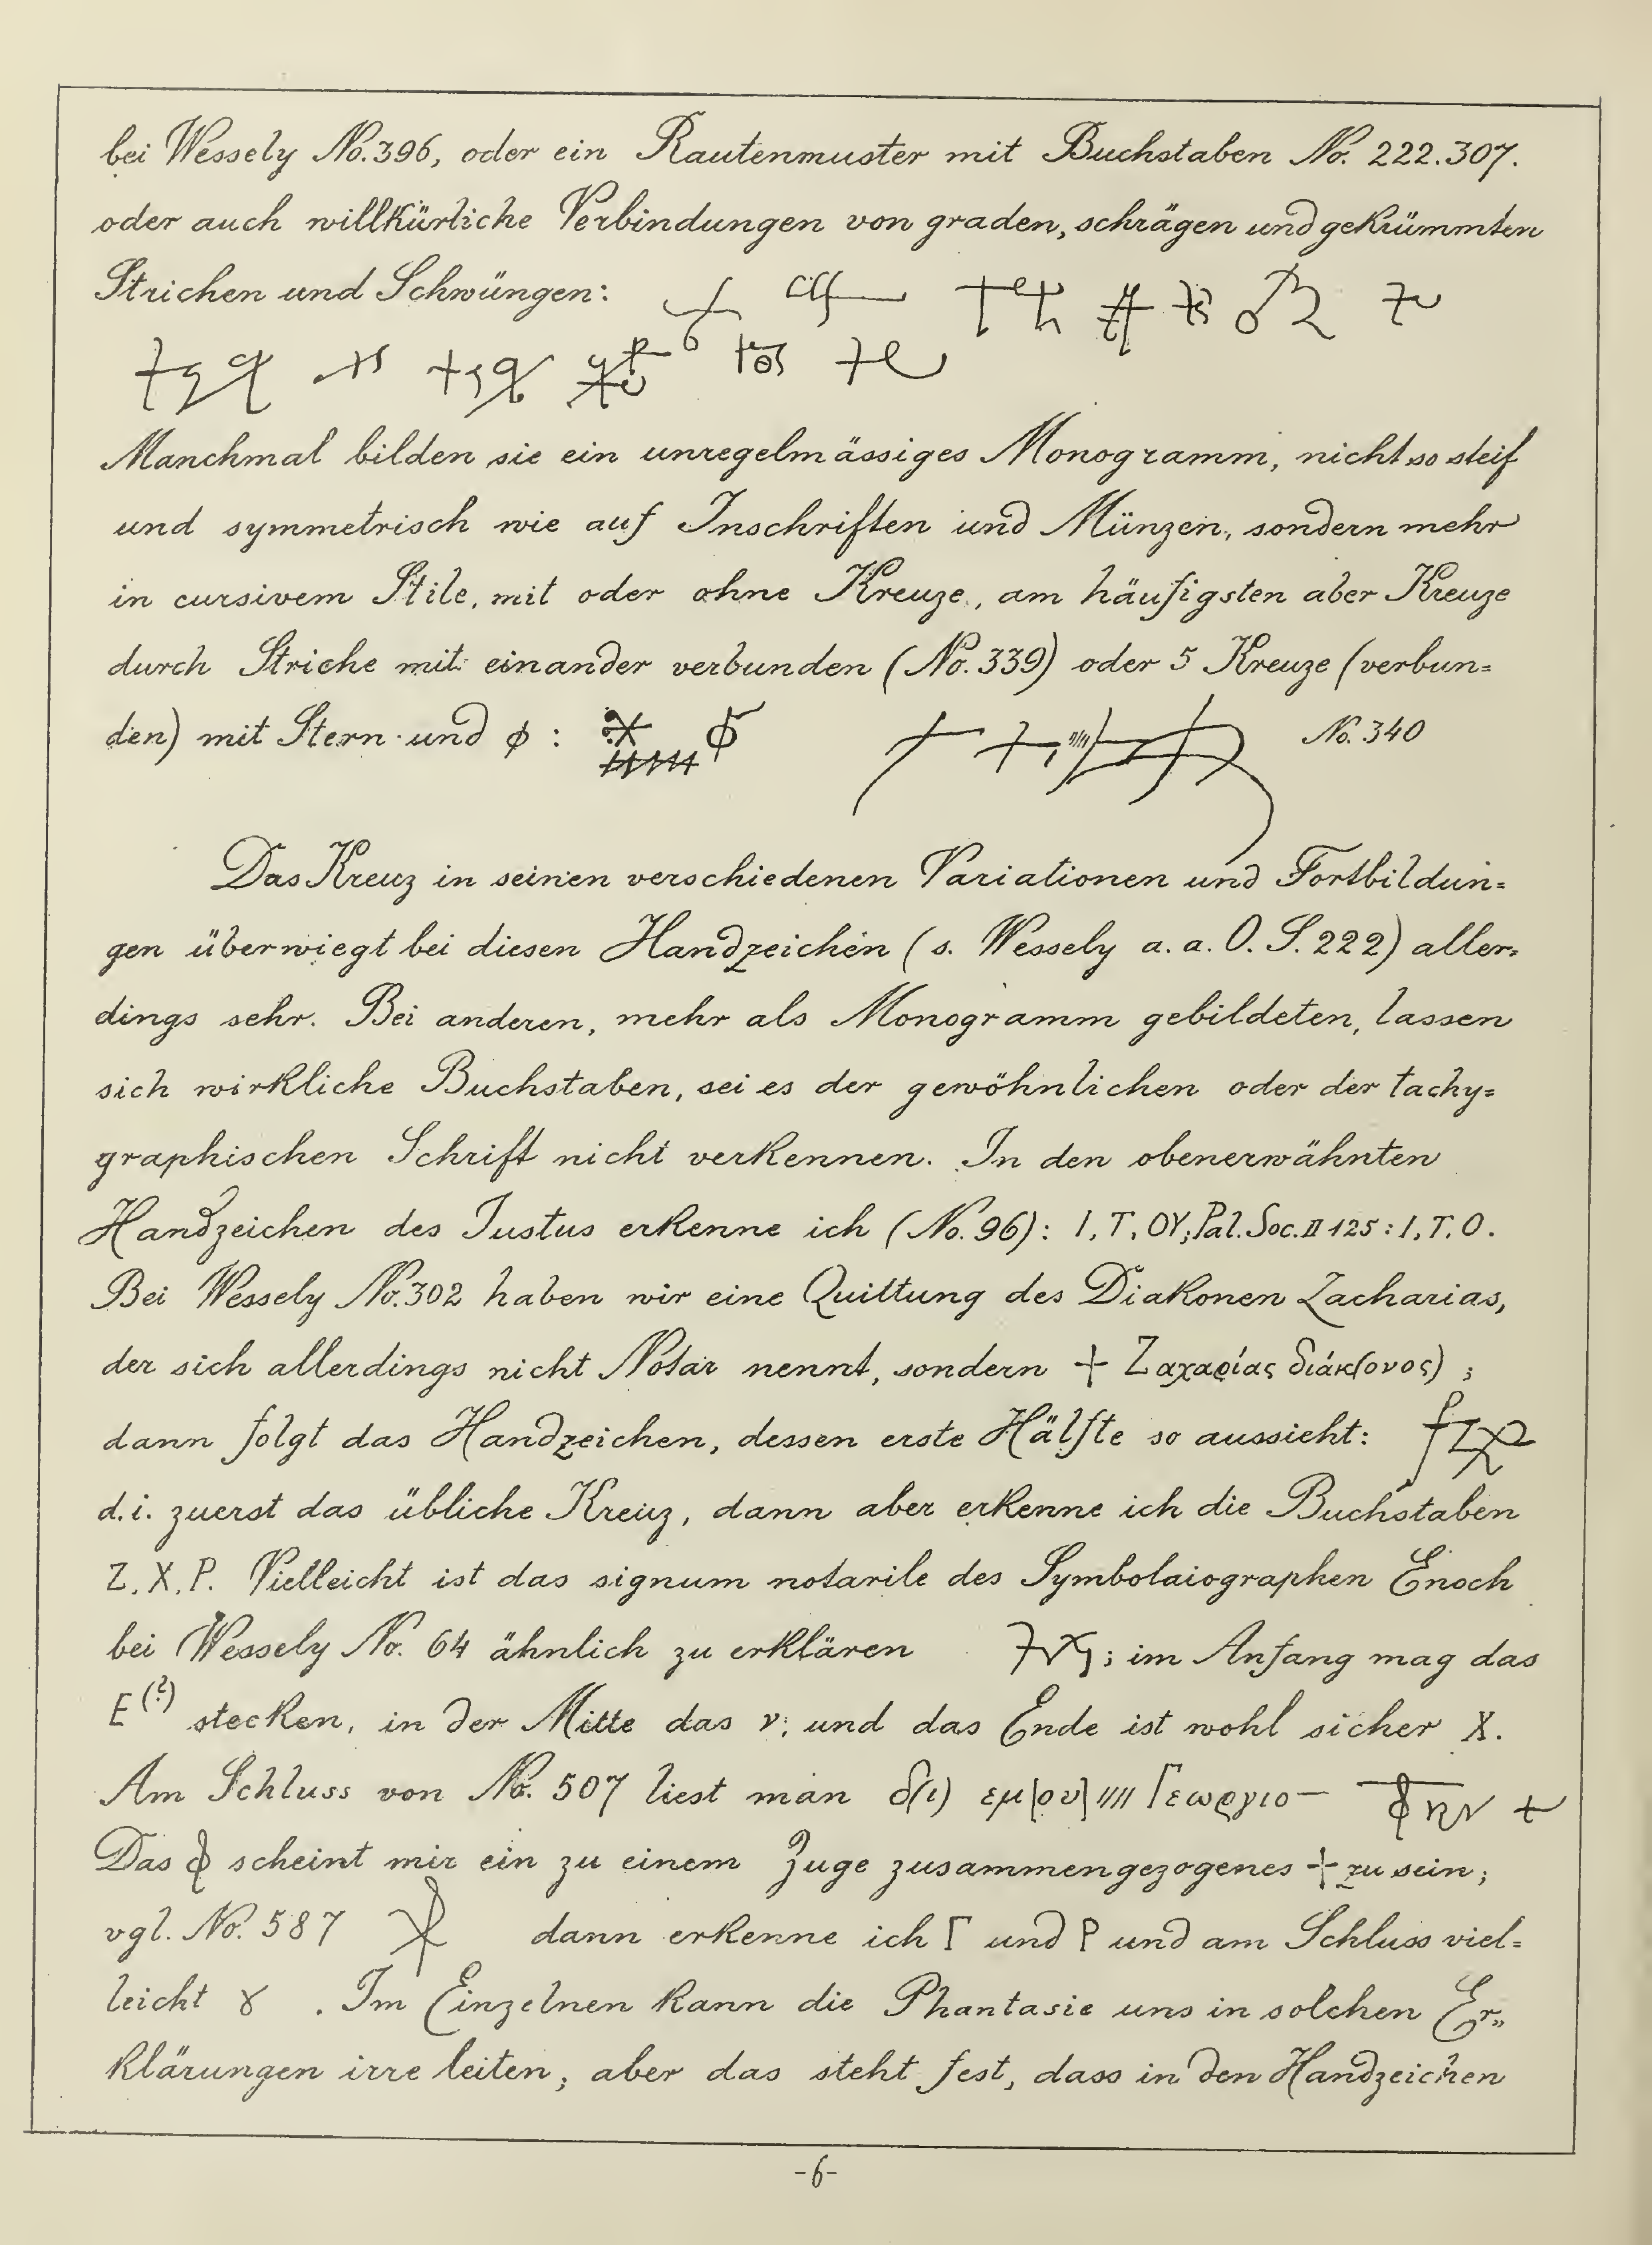 bei Wessely No. 396, oder ein Rautenmuster mit Buchstaben No. 222.307.
oder auch willkürliche Verbindungen von graden, schrägen und gekrümmten
Strichen und Schwüngen:
Manchmal bilden sie ein unregelmässiges Monogramm, nicht so steif
und symmetrisch wie auf Inschriften und Münzen, sondern mehr
in cursivem Stile, mit oder ohne Kreuze, am häufigsten aber Kreuze
durch Striche mit einander verbunden (No. 339) oder 5 Kreuze (verbun=
den) mit Stern und ϕ : No. 340
Das Kreuz in seinen verschiedenen Variationen und Fortbildun=
gen überwiegt bei diesen Handzeichen (s. Wessely a. a. O. S. 222) aller=
dings sehr. Bei anderen, mehr als Monogramm gebildeten, lassen
sich wirkliche Buchstaben, sei es der gewöhnlichen oder der tachy=
graphischen Schrift nicht verkennen. In den obenerwähnten
Handzeichen des Justus erkenne ich (No. 96): I, T, OY; Pal. Soc. II 125: I, T, O.
Bei Wessely No. 302 haben wir eine Quittung des Diakonen Zacharias,
der sich allerdings nicht Notar nennt, sondern + Ζαχαρίας διάκ(ονος) ;
dann folgt das Handzeichen, dessen erste Hälfte so aussieht:
d. i. zuerst das übliche Kreuz, dann aber erkenne ich die Buchstaben
Z, X, P. Vielleicht ist das signum notarile des Symbolaiographen Enoch
bei Wessely No. 64 ähnlich zu erklären ; im Anfang mag das
E (?) stecken, in der Mitte das ν, und das Ende ist wohl sicher X.
Am Schluss von No. 507 liest man δ(ι) εμ[ου] //// Γεωργιο— +
Das scheint mir ein zu einem Zuge zusammengezogenes + zu sein;
vgl. No. 587 dann erkenne ich Γ und P und am Schluss viel=
leicht ɣ . Im Einzelnen kann die Phantasie uns in solchen Er=
klärungen irre leiten, aber das steht fest, dass in den Handzeichen
-6-